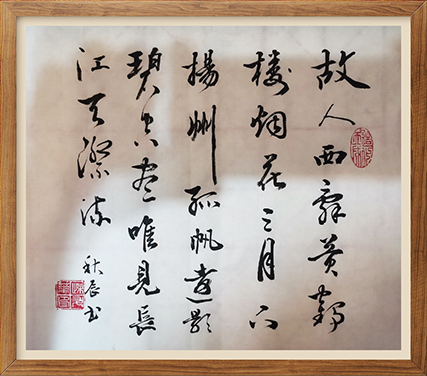 故人西辞黄鹤
楼烟花三月下
揚州孤帆遠影
碧空尽唯見長
江天際流
秋辰书